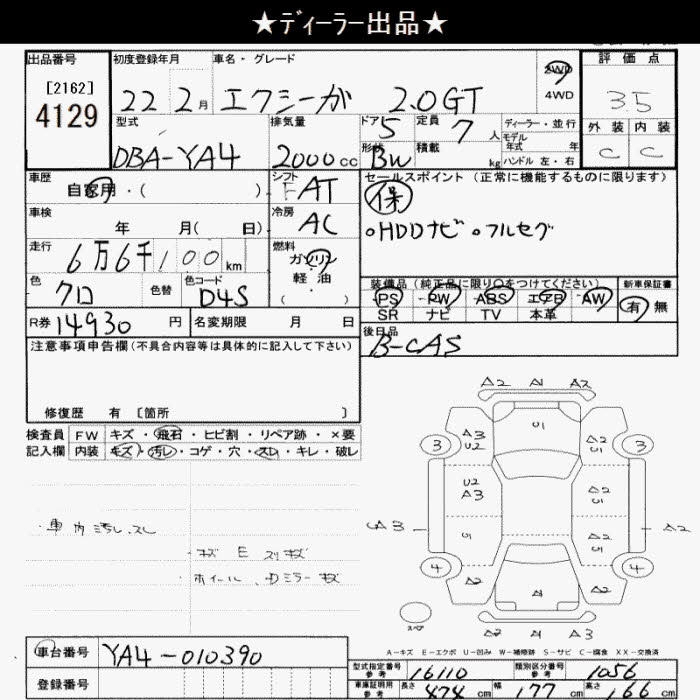 ★ディーラー出品★
出品番号
[2162]
4129
初度登録年月
22 2月
車名・グレード
エクシーガ 2.0GT
2WD
4WD
評価点
3.5
外装 内装
C C
型式
DBA-YA4
排気量
2000cc
ドア 5
形状 BW
定員 7人
積載 kg
ディーラー・並行
モデル
年式 年
ハンドル 左・右
車歴
自家用・( )
シフト
FAT
車検
年 月( 日)
冷房
AC
走行
6万6千100km
燃料
ガソリン
軽・油
( ・ )
色
クロ
色替
色コード
D4S
R券 14930 円
名変期限 月 日
セールスポイント(正常に機能するものに限ります)
保
○HDDナビ ○フルセグ
装備品(純正品に限り○をつけてください)
PS PW ABS エアB AW
SR ナビ TV 本革
新車保証書
有 無
後日品
B-CAS
注意事項申告欄(不具合内容等は具体的に記入して下さい)
修復歴 有 [箇所 ]
検査員
記入欄
FW キズ・飛石・ヒビ割・リペア跡・×要
内装 キズ・汚レ・コゲ・穴・スレ・キレ・破レ
・車内汚レ、スレ
・キズ E スリキズ
・ホイール、Dミラーキズ
A2 A1 A2
U1
3 A3 U2 A2 U1 3
U2 A3 A2 U1
A3 A2
U1 A2 U1
4 A2 A2 4
A1
A2 A1 A2
スペア
A-キズ E-エクボ U-凹み W-補修跡 S-サビ C-腐食 XX-交換済
車台番号 YA4-010390
登録番号
型式指定番号
参考
16110
類別区分番号
参考
1056
車庫証明用
参考
長さ 474cm 幅 177cm 高さ 166cm